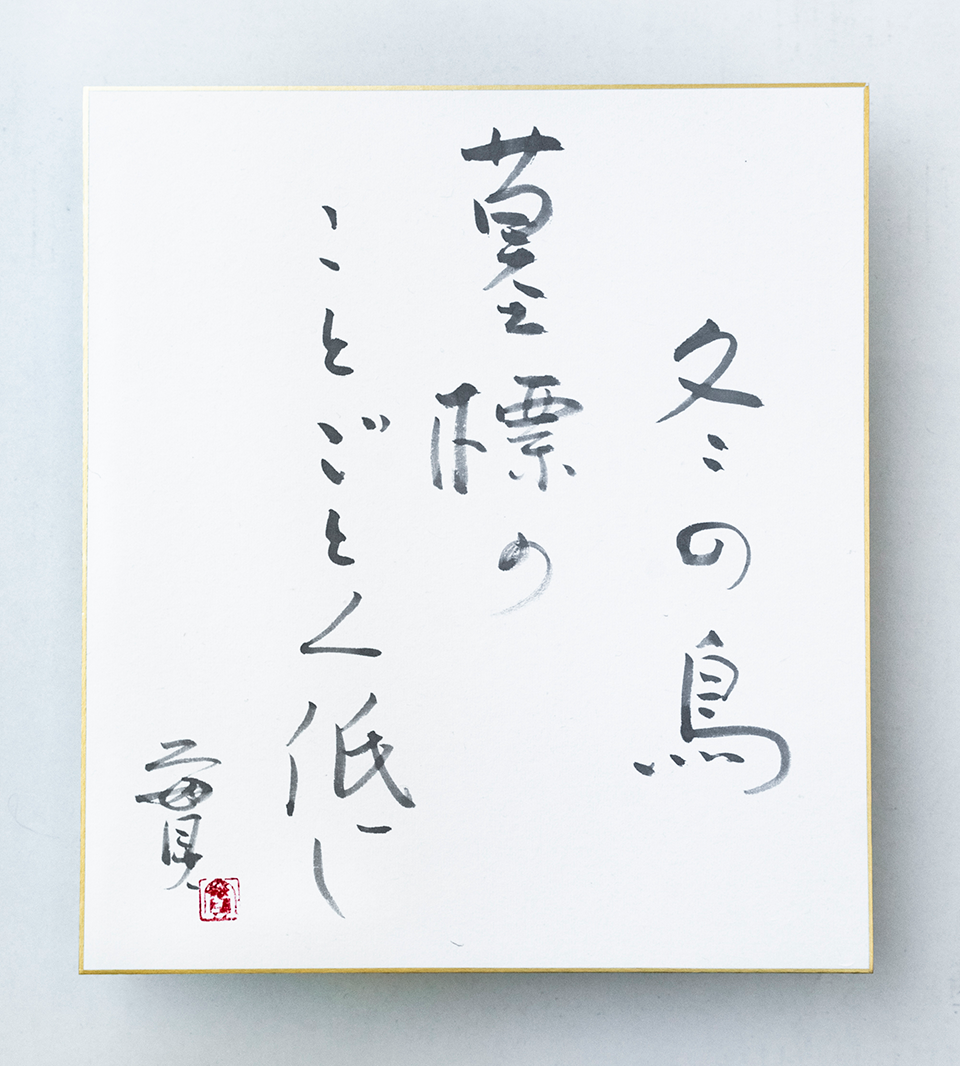 冬の鳥
墓標の
ことごとく低し
一實